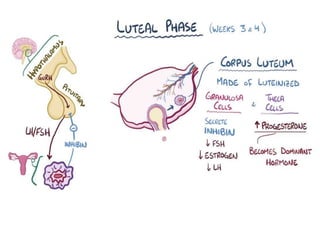 LUTEAL PHASE (WEEKS 3 & 4)
HYPOTHALAMUS
GnRH
PITUITARY
LH/FSH
INHIBIN
CORPUS LUTEUM
MADE OF LUTEINIZED
GRANULOSA CELLS
&
THECA CELLS
SECRETE
INHIBIN
↓ FSH
↓ ESTROGEN
↓ LH
↑ PROGESTERONE
BECOMES DOMINANT
HORMONE